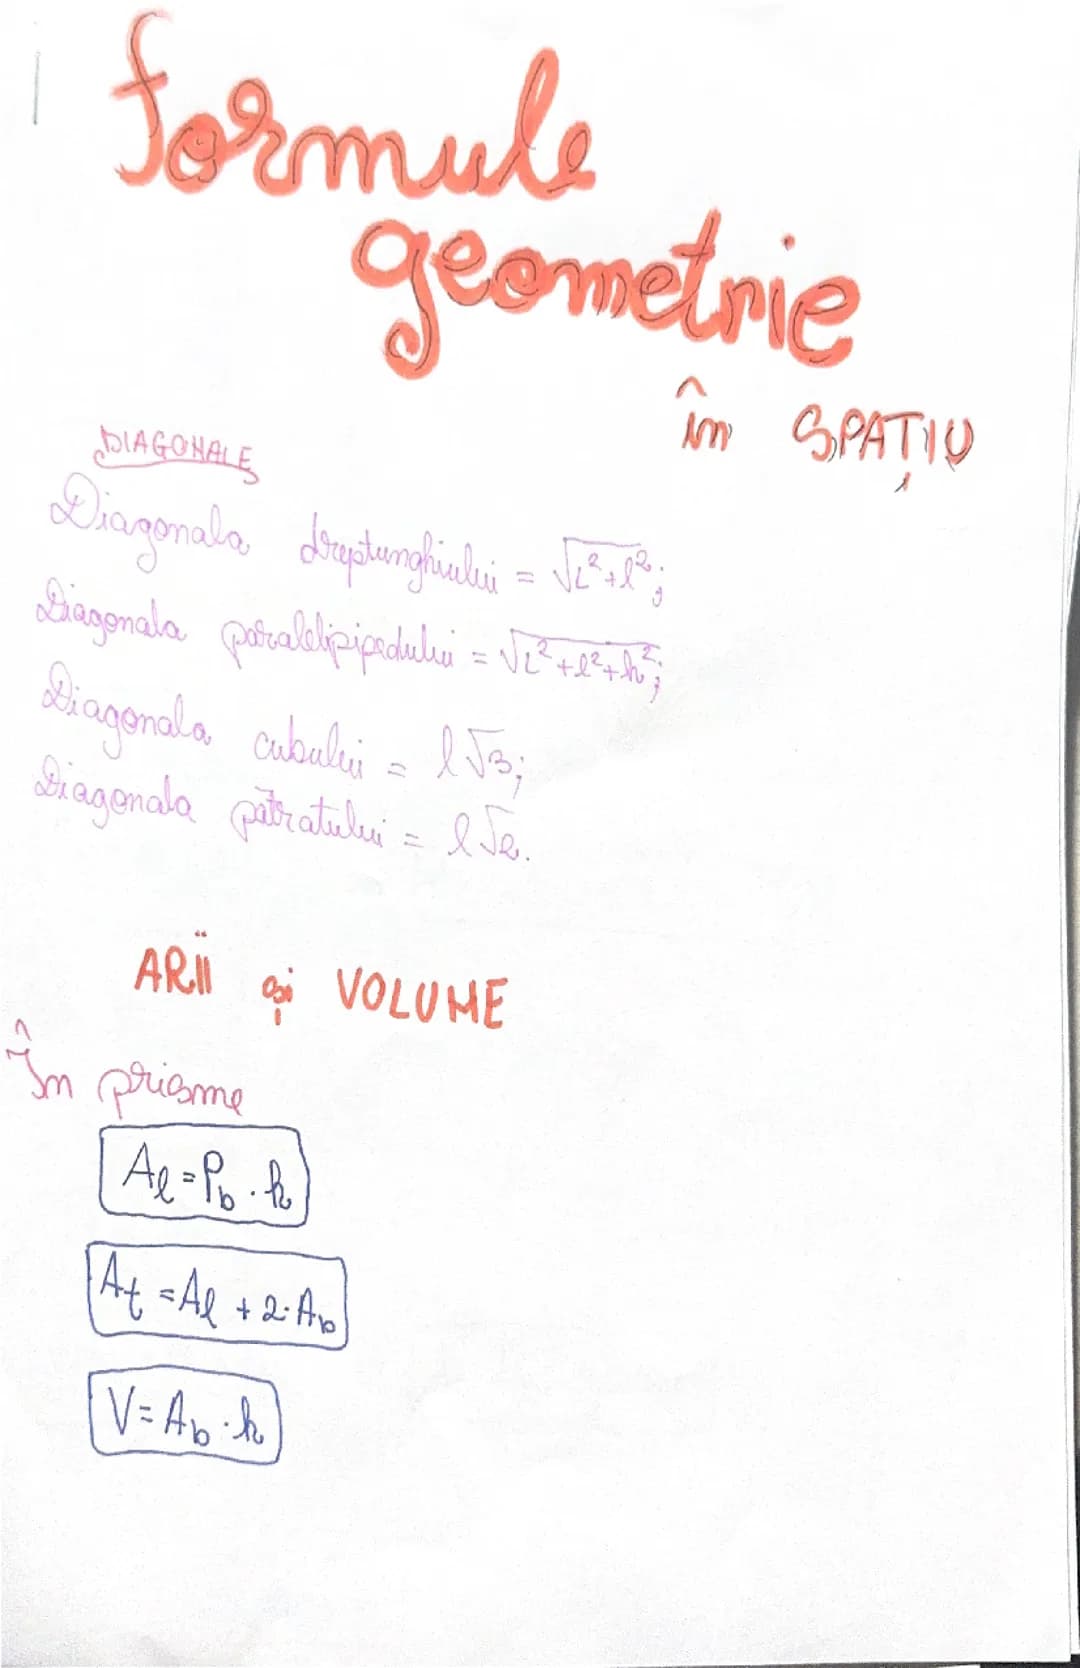 formule
geometrie
în SPAȚIU
DIAGONALE
Diagonala dreptunghiului = √L²+l²;
Diagonala paralelipipedului = √L²+l²+h²;
Diagonala cubului = l√3;
Diagonala pătratului = l√2.
ARII și VOLUME
În prisme
Al = Pb · h
At = Al + 2·Ab
V = Ab · h